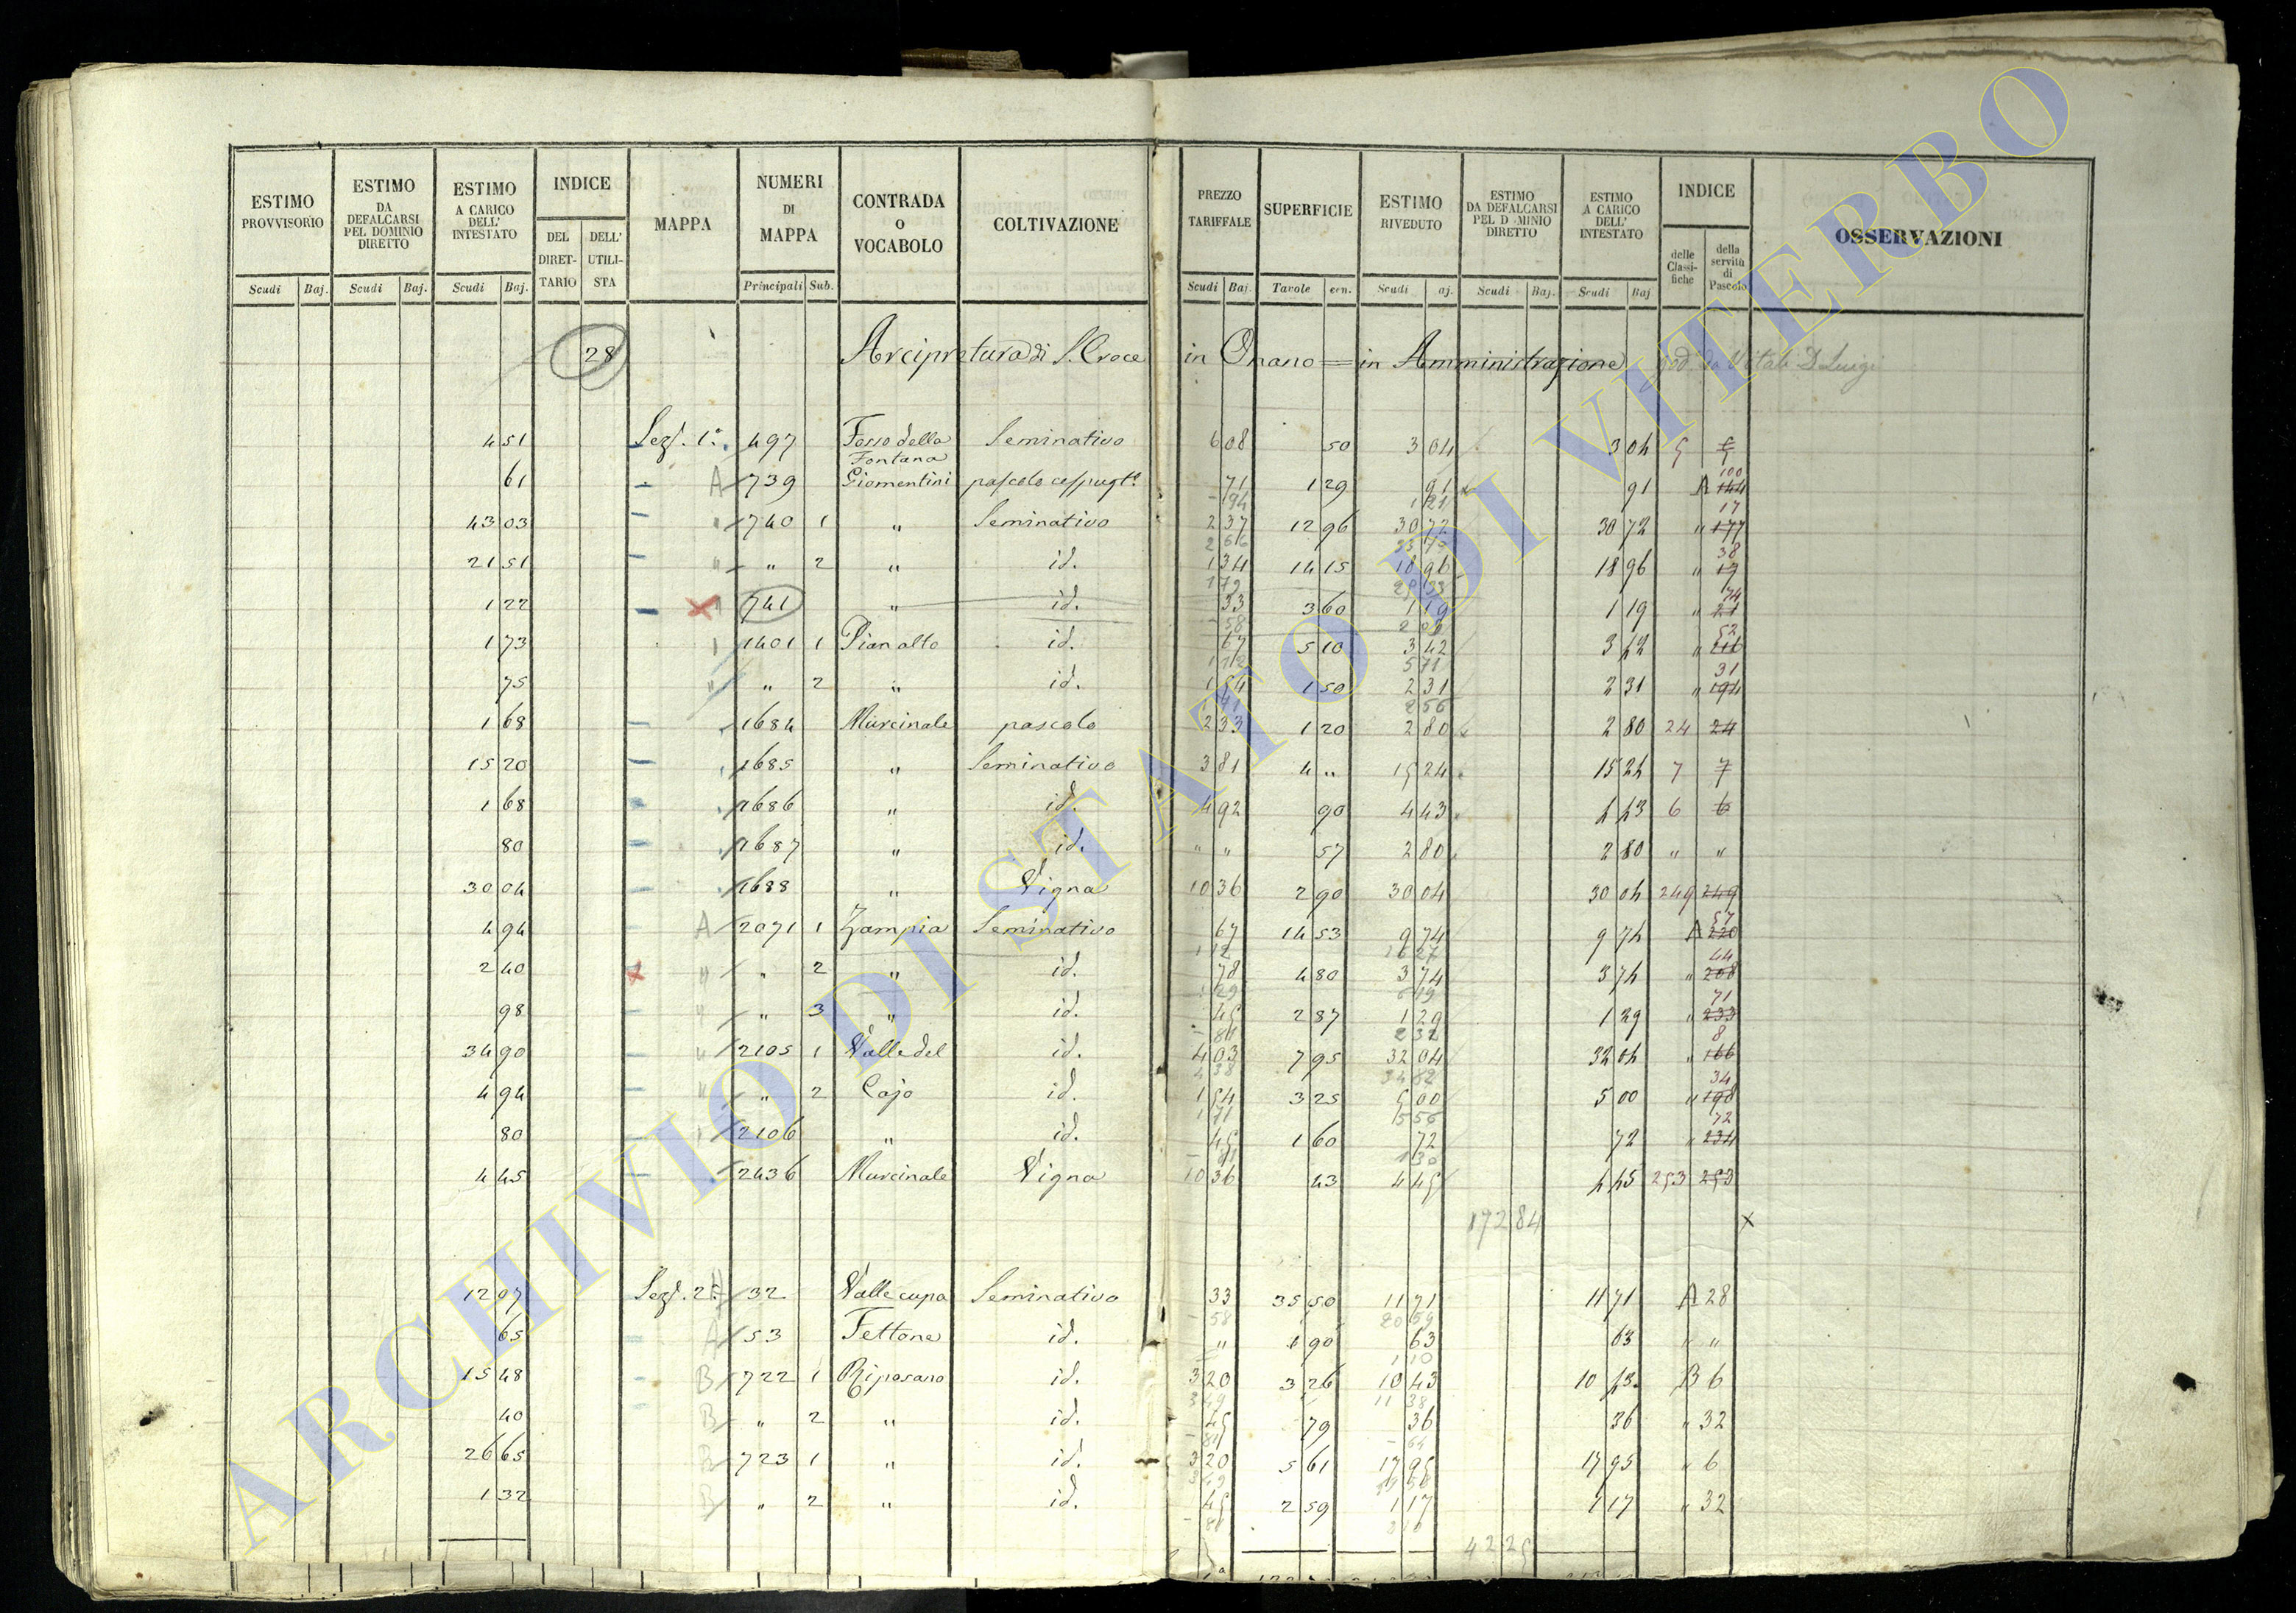 ESTIMO PROVVISORIO Scudi Baj.
ESTIMO DA DEFALCARSI PEL DOMINIO DIRETTO Scudi Baj.
ESTIMO A CARICO DELL' INTESTATO Scudi Baj.
INDICE DEL DIRET-TARIO DELL' UTILI-STA
MAPPA
NUMERI DI MAPPA Principali Sub.
CONTRADA o VOCABOLO
COLTIVAZIONE
PREZZO TARIFFALE Scudi Baj.
SUPERFICIE Tavole cen.
ESTIMO RIVEDUTO Scudi aj.
ESTIMO DA DEFALCARSI PEL D MINIO DIRETTO Scudi Baj.
ESTIMO A CARICO DELL' INTESTATO Scudi Baj
INDICE delle Classi-fiche della servitù di Pascolo
OSSERVAZIONI
28 Arcipretura di S. Croce in Onano = in Amministrazione god. da Vitali D. Luigi
4 51 Sez. 1ª 497 Fosso della Fontana Seminativo 6 08 50 3 04 3 04 5
61 A 739 Giomentini pascolo cespugt° 71 1 29 91 91 A 144 100
43 03 " 740 1 " Seminativo 2 37 12 96 30 72 30 72 " 177 17
21 51 " " 2 " id. 1 34 14 15 18 96 18 96 " 19 38
1 22 741 " id. 33 3 60 1 19 1 19 " 21 74
1 73 1401 1 Pian alto id. 67 5 10 3 42 3 42 " 216 52
75 " " 2 " id. 1 54 1 50 2 31 2 31 " 194 31
1 68 1684 Murcinale pascolo 2 33 1 20 2 80 2 80 24 24
15 20 1685 " Seminativo 3 81 4 " 15 24 15 24 7 7
1 68 1686 " id. 4 92 90 4 43 4 43 6 6
80 1687 " id. " " 57 2 80 2 80 " "
30 04 1688 " Vigna 10 36 2 90 30 04 30 04 249 249
4 94 A 2071 1 Zampia Seminativo 67 14 53 9 74 9 74 A 220 57
2 40 " " 2 " id. 78 4 80 3 74 3 74 " 208 44
98 " " 3 " id. 45 2 87 1 29 1 29 " 233 71
34 90 " 2105 1 Valle del id. 4 03 7 95 32 04 32 04 " 166 8
4 94 " " 2 Cajo id. 1 54 3 25 5 00 5 00 " 198 34
80 2106 " id. 45 1 60 72 72 " 234 72
4 45 2436 Murcinale Vigna 10 36 43 4 45 4 45 253 253
172 84 x
12 07 Sez. 2ª 32 Valle cupa Seminativo 33 35 50 11 71 11 71 A 28
65 A 53 Fettone id. " 1 90 63 63 " "
15 48 B 722 1 Riposano id. 3 20 3 26 10 43 10 43 B 6
40 B " 2 " id. 45 79 36 36 " 32
26 65 B 723 1 " id. 3 20 5 61 17 95 17 95 " 6
1 32 B " 2 " id. 45 2 59 1 17 1 17 " 32
42 25
ARCHIVIO DI STATO DI VITERBO